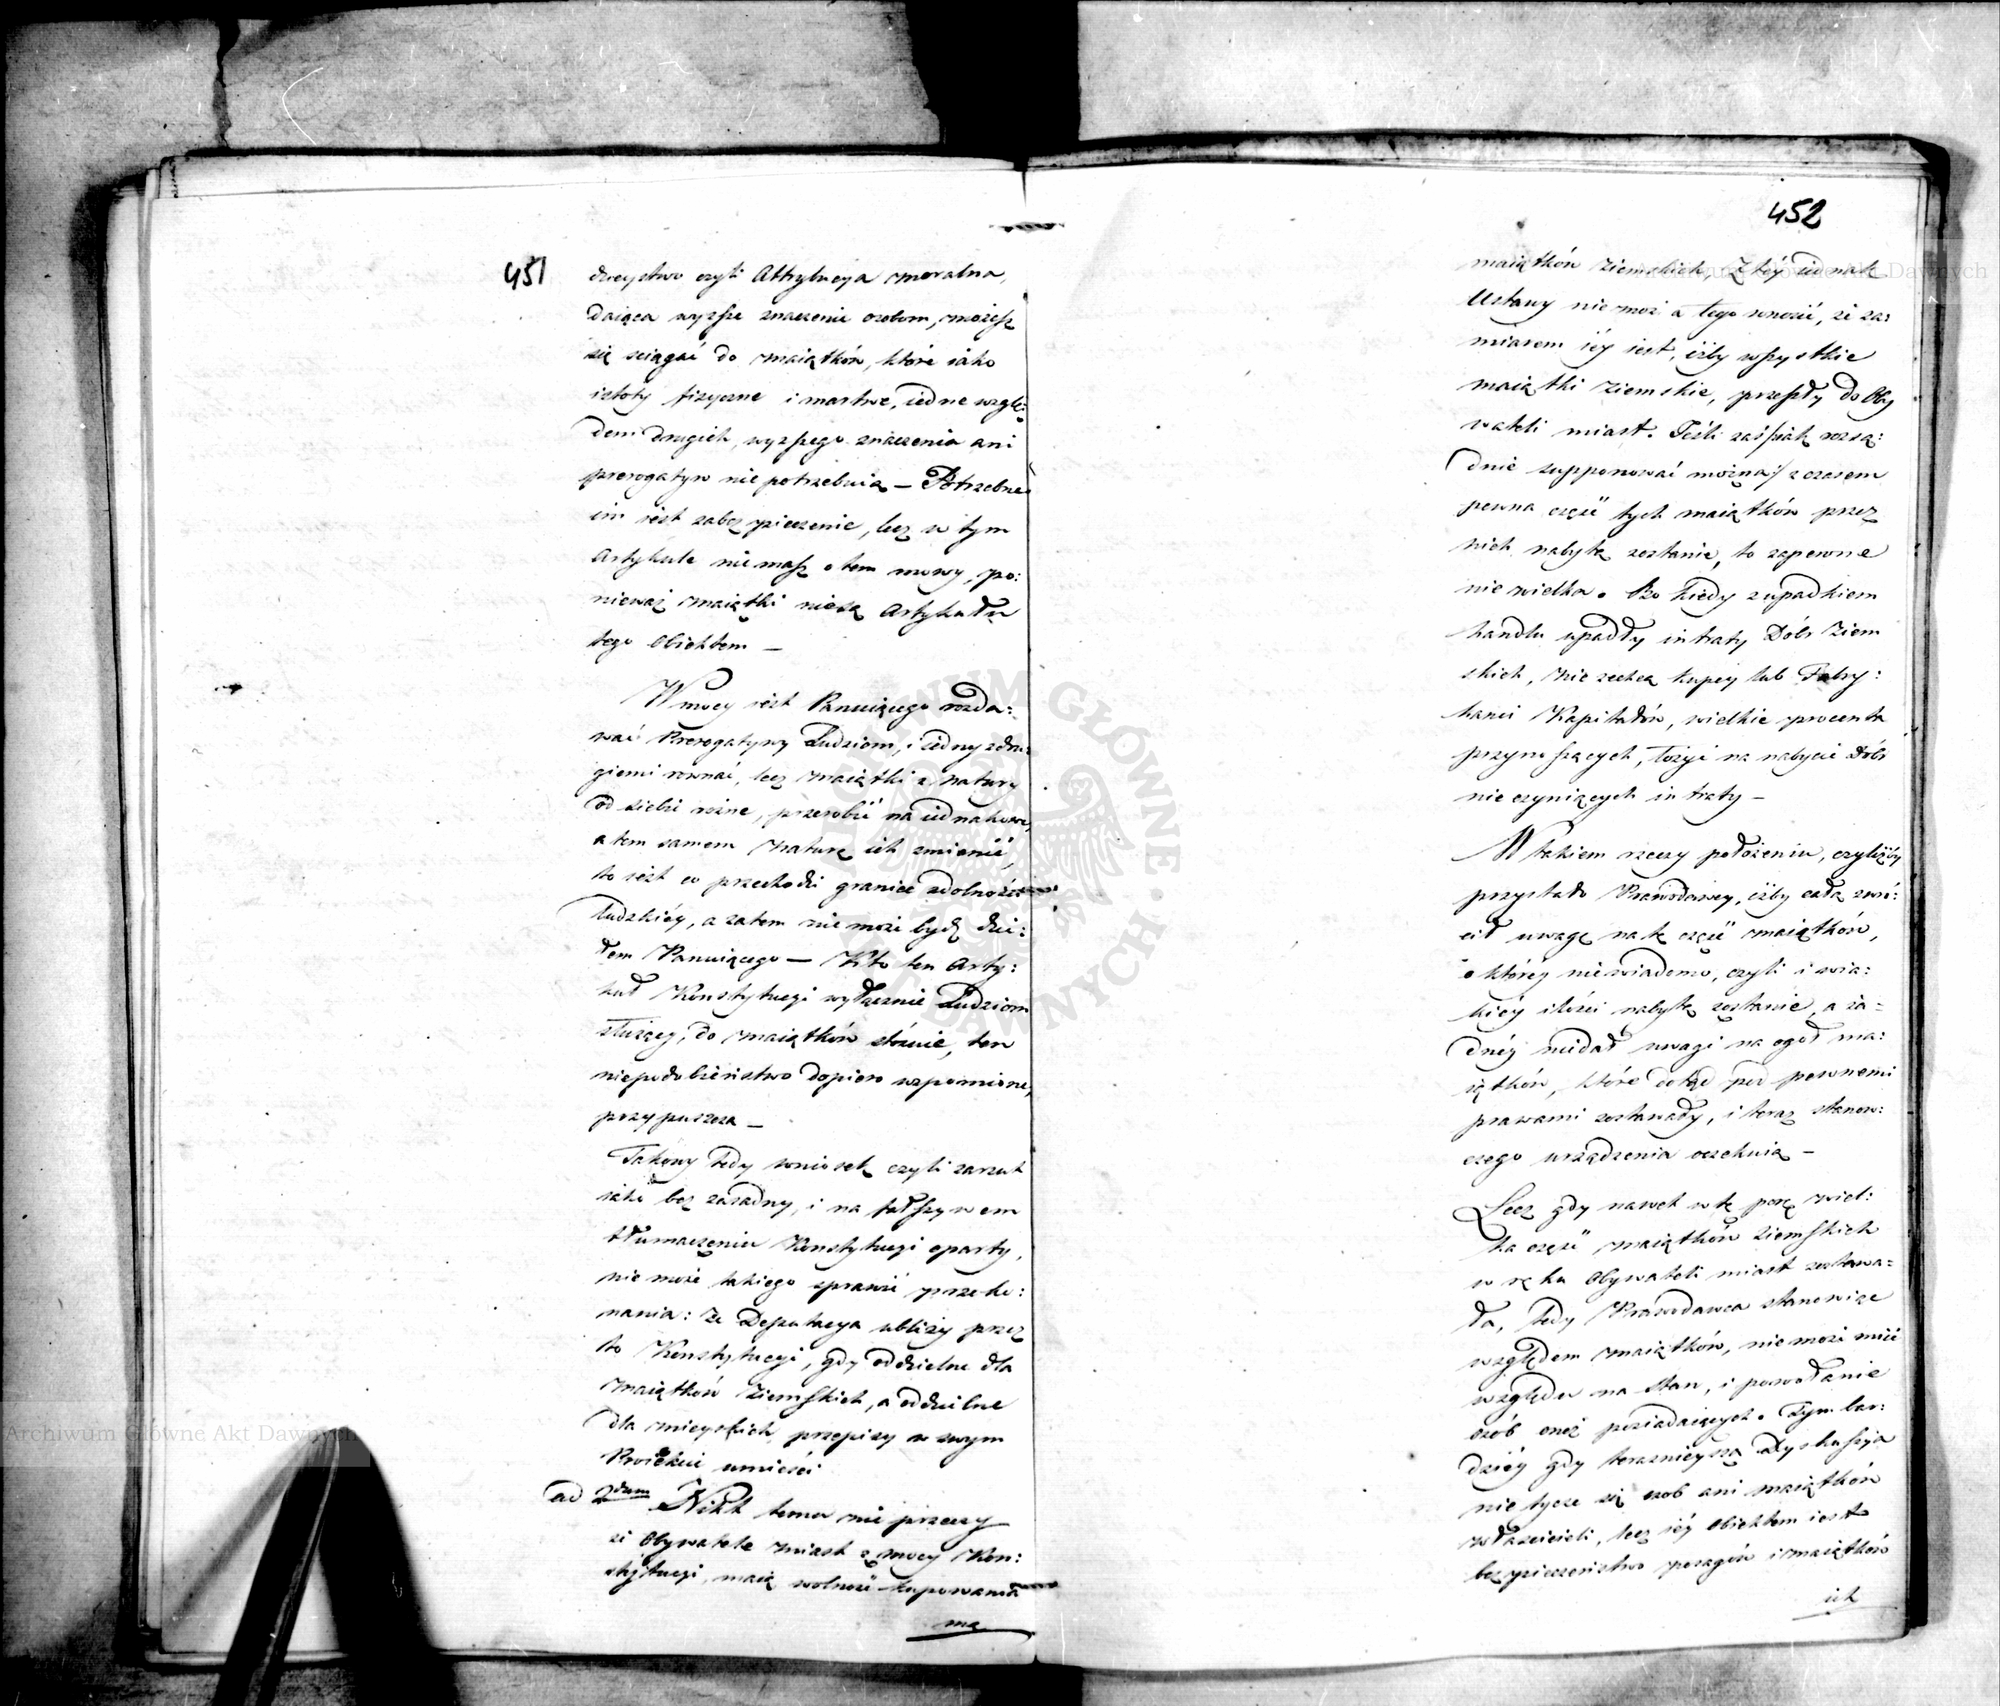 451
dzieystwo czyli Attrybucya moralna,
daiąca wyższe znaczenie osobom, możesz
się sciągać do maiątków, które iako
istoty fizyczne i martwe, iedne wzglę:
dem drugich, wyższego znaczenia ani
prerogatyw nie potrzebuią — Potrzebne
im iest zabezpieczenie, lecz w tym
Artykule nie masz o tem mowy, po:
nieważ maiątki nie są Artykułu
tego Obiektem —
W mocy iest Panuiącego rozda:
wać Prerogatywy Ludziom, i iednych z dru:
giemi rownać, lecz maiątki z natury
od siebie rożne, przerobić na iednakowe,
a tem samem naturę ich zmienić,
to iest co przechodzi granice zdolności
ludzkiéy, a zatem nie może bydź dzie:
łem Panuiącego — Kto ten Arty:
kuł Konstytucyi wyłącznie Ludziom
służący, do maiątków stosuie, ten
niepodobieństwo dopiero wspomnione,
przypuszcza —
Takowy tedy wniosek czyli zarzut
iako bez zasadny, i na fałszywem
tłumaczeniu Konstytucyi oparty,
nie może takiego sprawić przeko:
nania: że Deputacya ubliży przez
to Konstytucyi, gdy oddzielne dla
maiątków Ziemskich, a oddzielne
dla mieyskich przepisy w swym
Proiekcie umieści
ad 2dum Nikt temu nie przeczy
że Obywatele miast z mocy Kon:
stytucyi, maią wolność kupowania
ma
452
maiątków Ziemskich, Z téy iednak
Ustawy nie moż a tego wnosić, że za:
miarem iéy iest, iżby wszystkie
maiątki Ziemskie, przeszły do Oby
wateli miast. Jeśli zaś /:iak rozsą:
dnie supponować można:/ z czasem
pewna część tych maiątków przez
nich nabytą zostanie, to zapewne
nie wielka. Bo kiedy z upadkiem
handlu upadły intraty Dóbr Ziem
skich, nie zechcą kupcy lub Fabry:
kanci Kapitałów, wielkie procenta
przynoszących, łożyć na nabycie Dóbr
nie czyniących intraty —
W takiem rzeczy położeniu, czyliżby
przystało Prawodawcy, iżby całą zwró:
cił uwagę na tę część maiątków,
o któréy nie wiadomo, czyli i w ia:
kiéy ilości nabytą zostanie, a ża:
dnéy nie dał uwagi na ogoł ma:
iątków, które dotąd pod pewnemi
prawami zostawały, i teraz stanow:
czego urządzenia oczekuią —
Lecz gdy nawet w tę porę wiel:
ka część maiątków Ziemskich
w ręku Obywateli miast zostawa:
ła, tedy Prawodawca stanowiąc
względem maiątków, nie może mieć
względu na Stan, i powołanie
osób one posiadaiących. Tym bar:
dziéy gdy teraznieysza dyskussya
nie tycze się osob ani maiątków
właścicieli, lecz iéy Obiektem iest
bezpieczeństwo posagów i maiątków
ich
Archiwum Główne Akt Dawnych
Archiwum Główne Akt Dawnych
ARCHIWUM GŁÓWNE AKT DAWNYCH